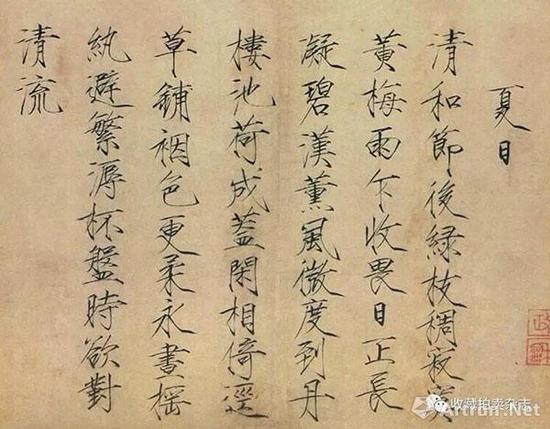 夏日
清和節後緑枝稠寂寞
黄梅雨乍收畏日正長
凝碧漢薰風微度到丹
樓池荷成蓋閑相倚逕
草鋪裀色更柔永晝摇
紈避繁溽杯盤時欲對
清流
收藏拍卖杂志
Artron.Net